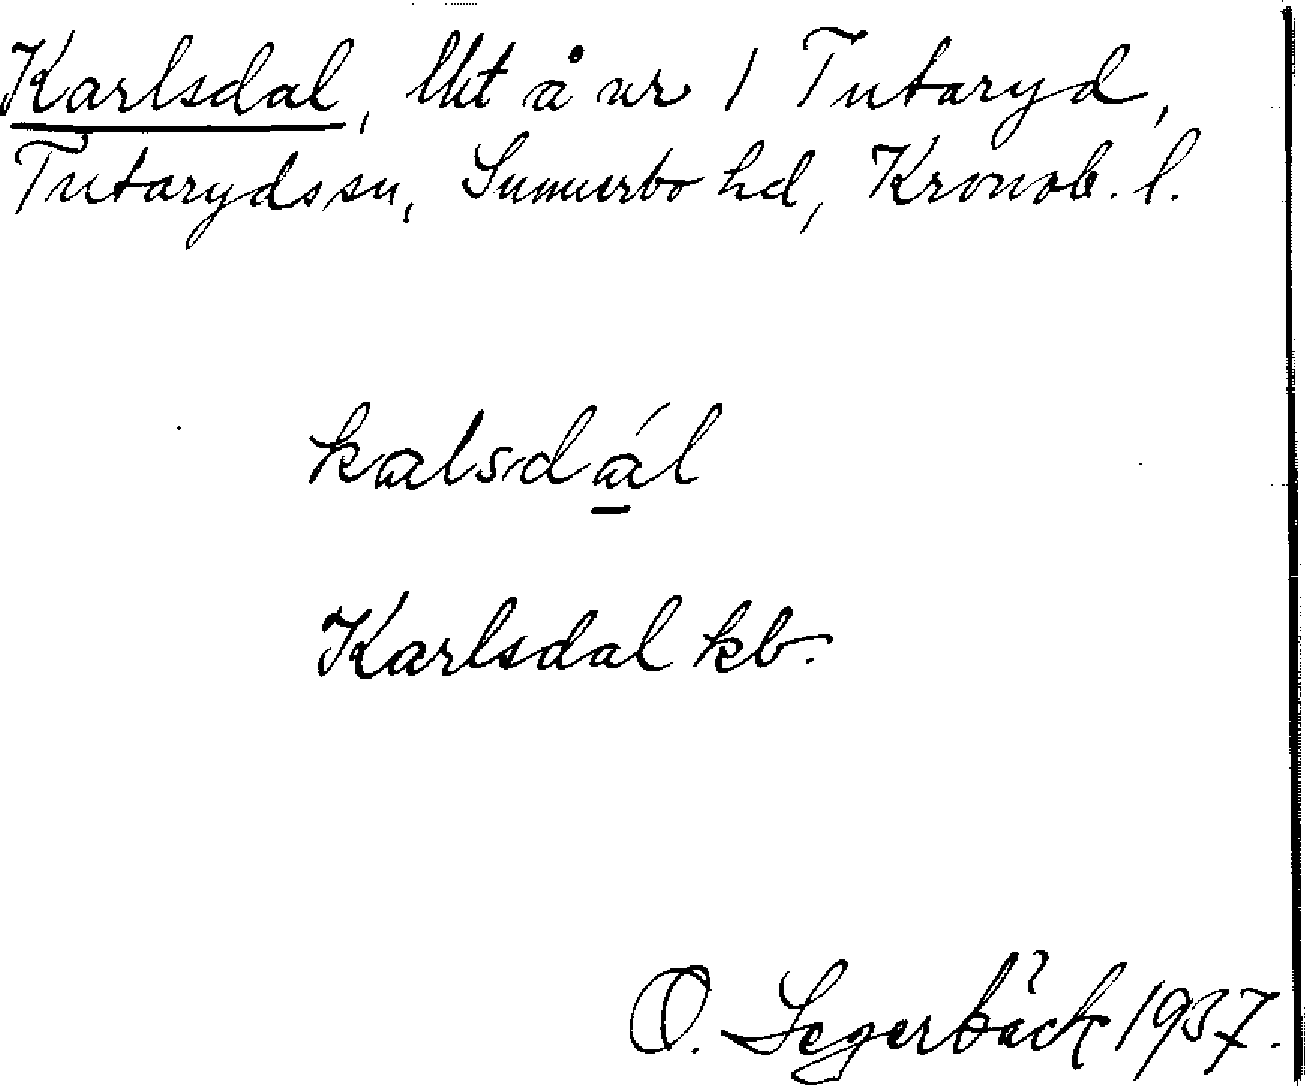 Karlsdal, lht å nr 1 Tutaryd,
Tutaryds sn, Sunnerbo hd, Kronob. l.
kalsdál
Karlsdal kb.
O. Segerbäck 1937.